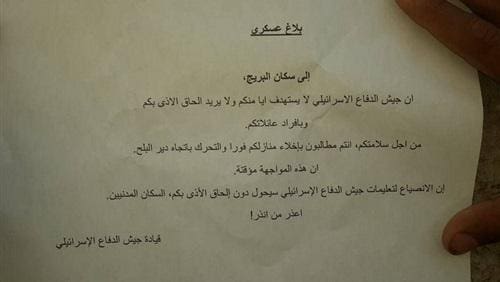 بلاغ عسكري
إلى سكان البريج،
ان جيش الدفاع الاسرائيلي لا يستهدف ايا منكم ولا يريد الحاق الاذى بكم
وبافراد عائلاتكم.
من اجل سلامتكم، انتم مطالبون بإخلاء منازلكم فورا والتحرك باتجاه دير البلح.
ان هذه المواجهة مؤقتة.
إن الانصياع لتعليمات جيش الدفاع الإسرائيلي سيحول دون إلحاق الأذى بكم، السكان المدنيين.
اعذر من انذر!
قيادة جيش الدفاع الإسرائيلي